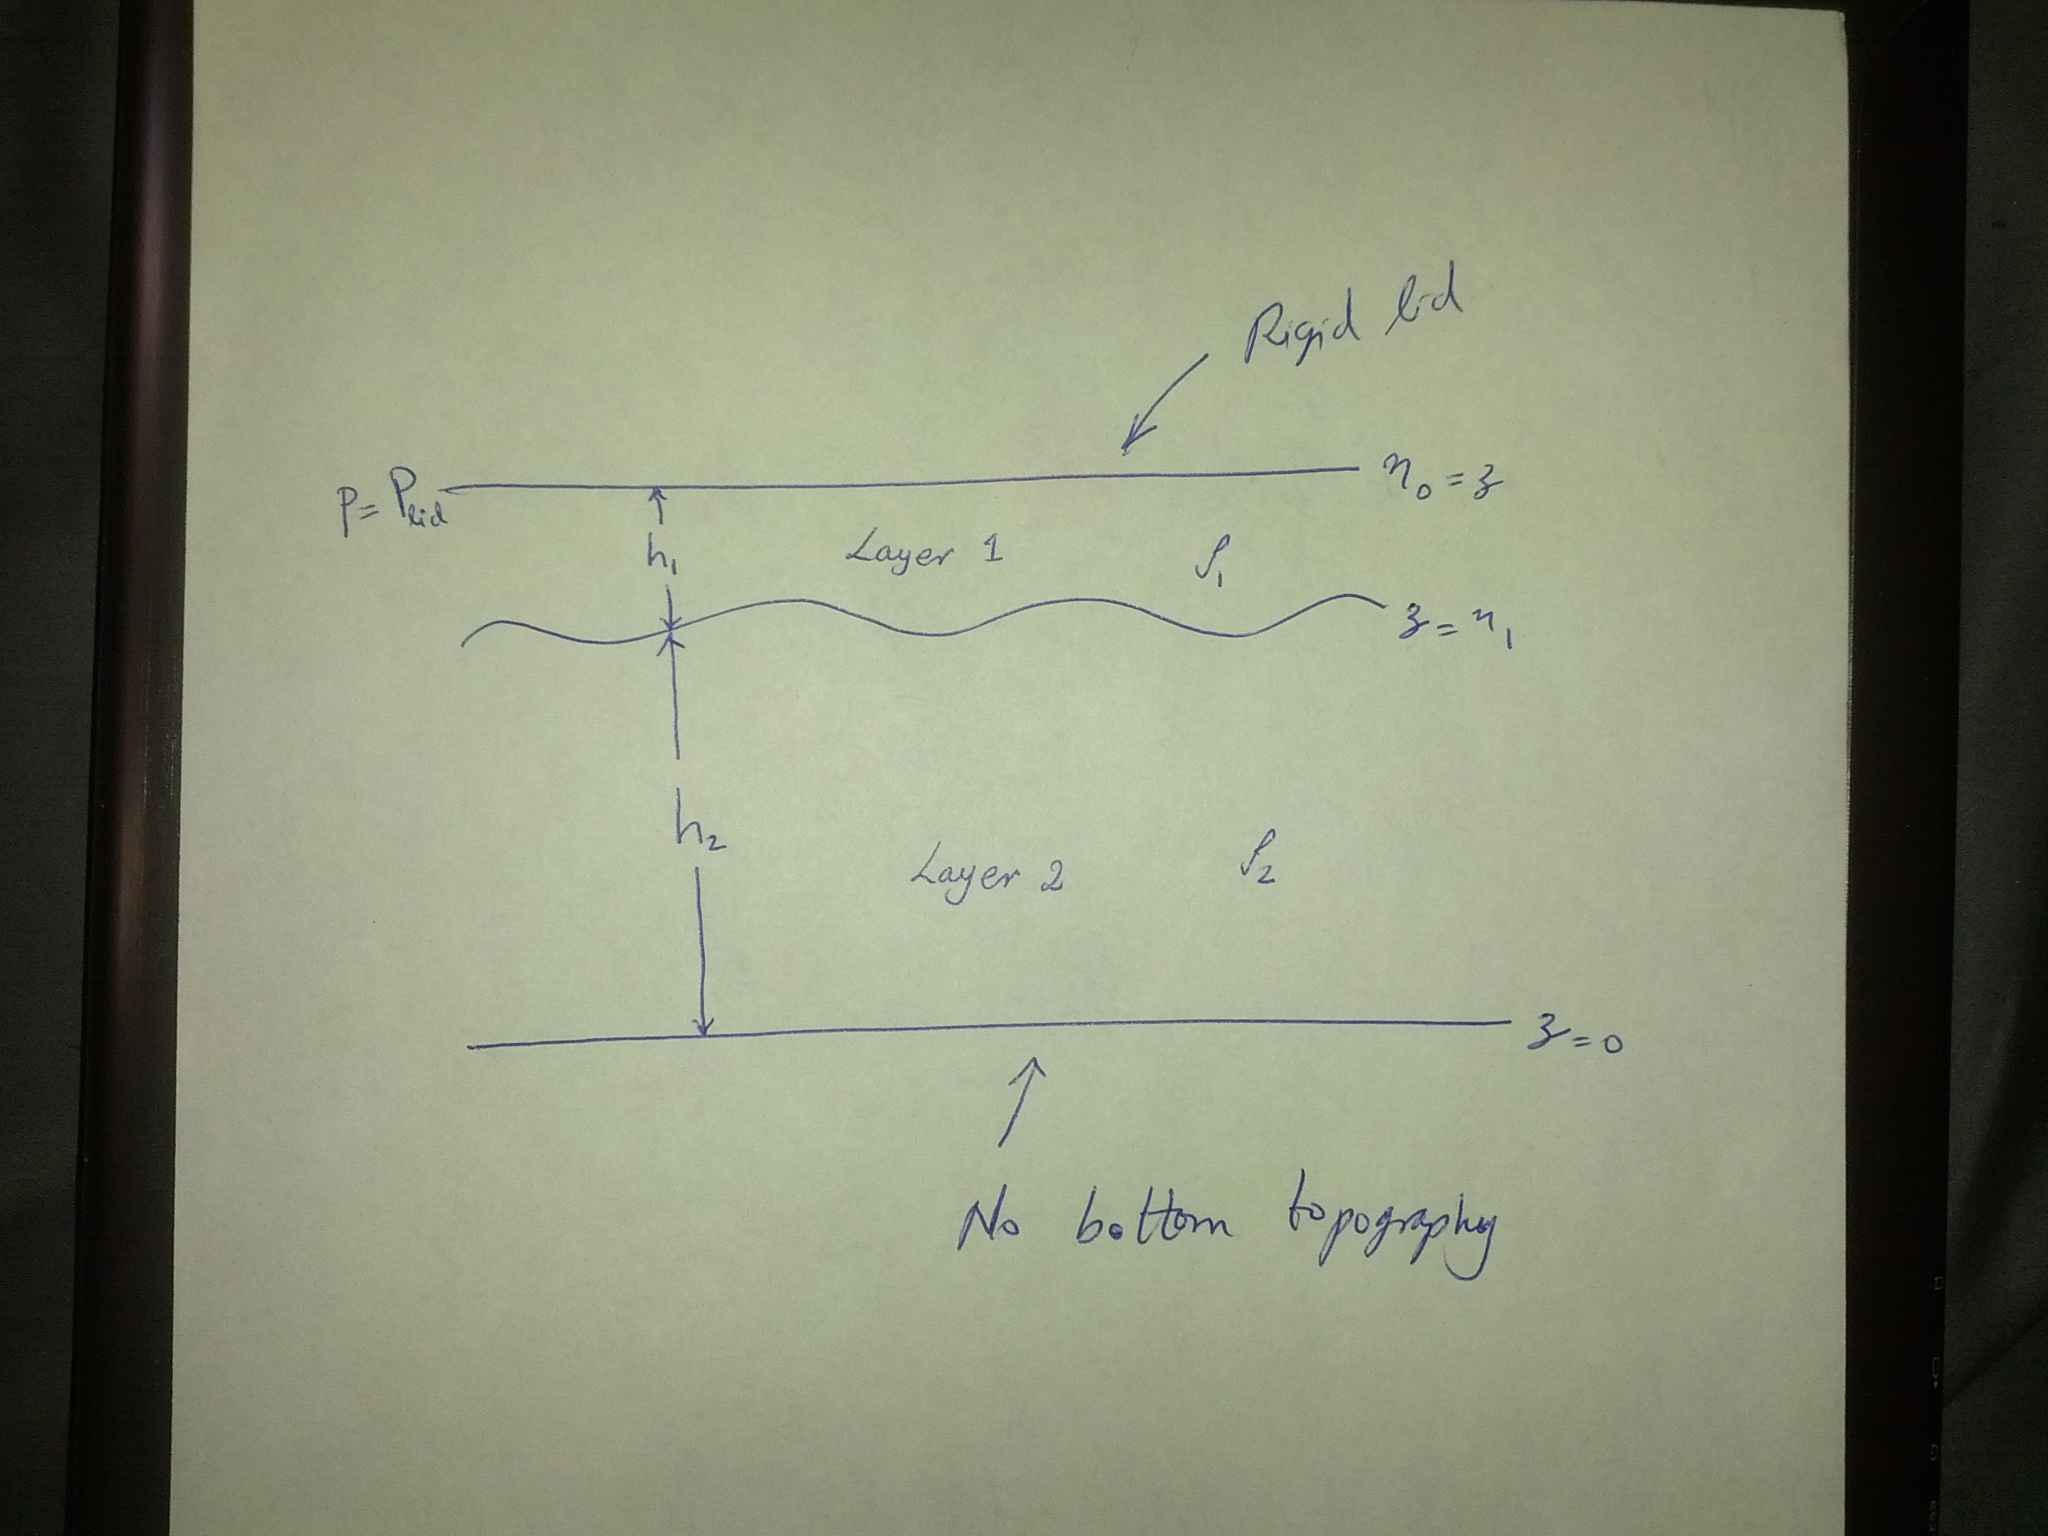 Rigid lid
P = Plid
η₀ = z
h₁
Layer 1
ρ₁
z = η₁
h₂
Layer 2
ρ₂
z = 0
No bottom topography